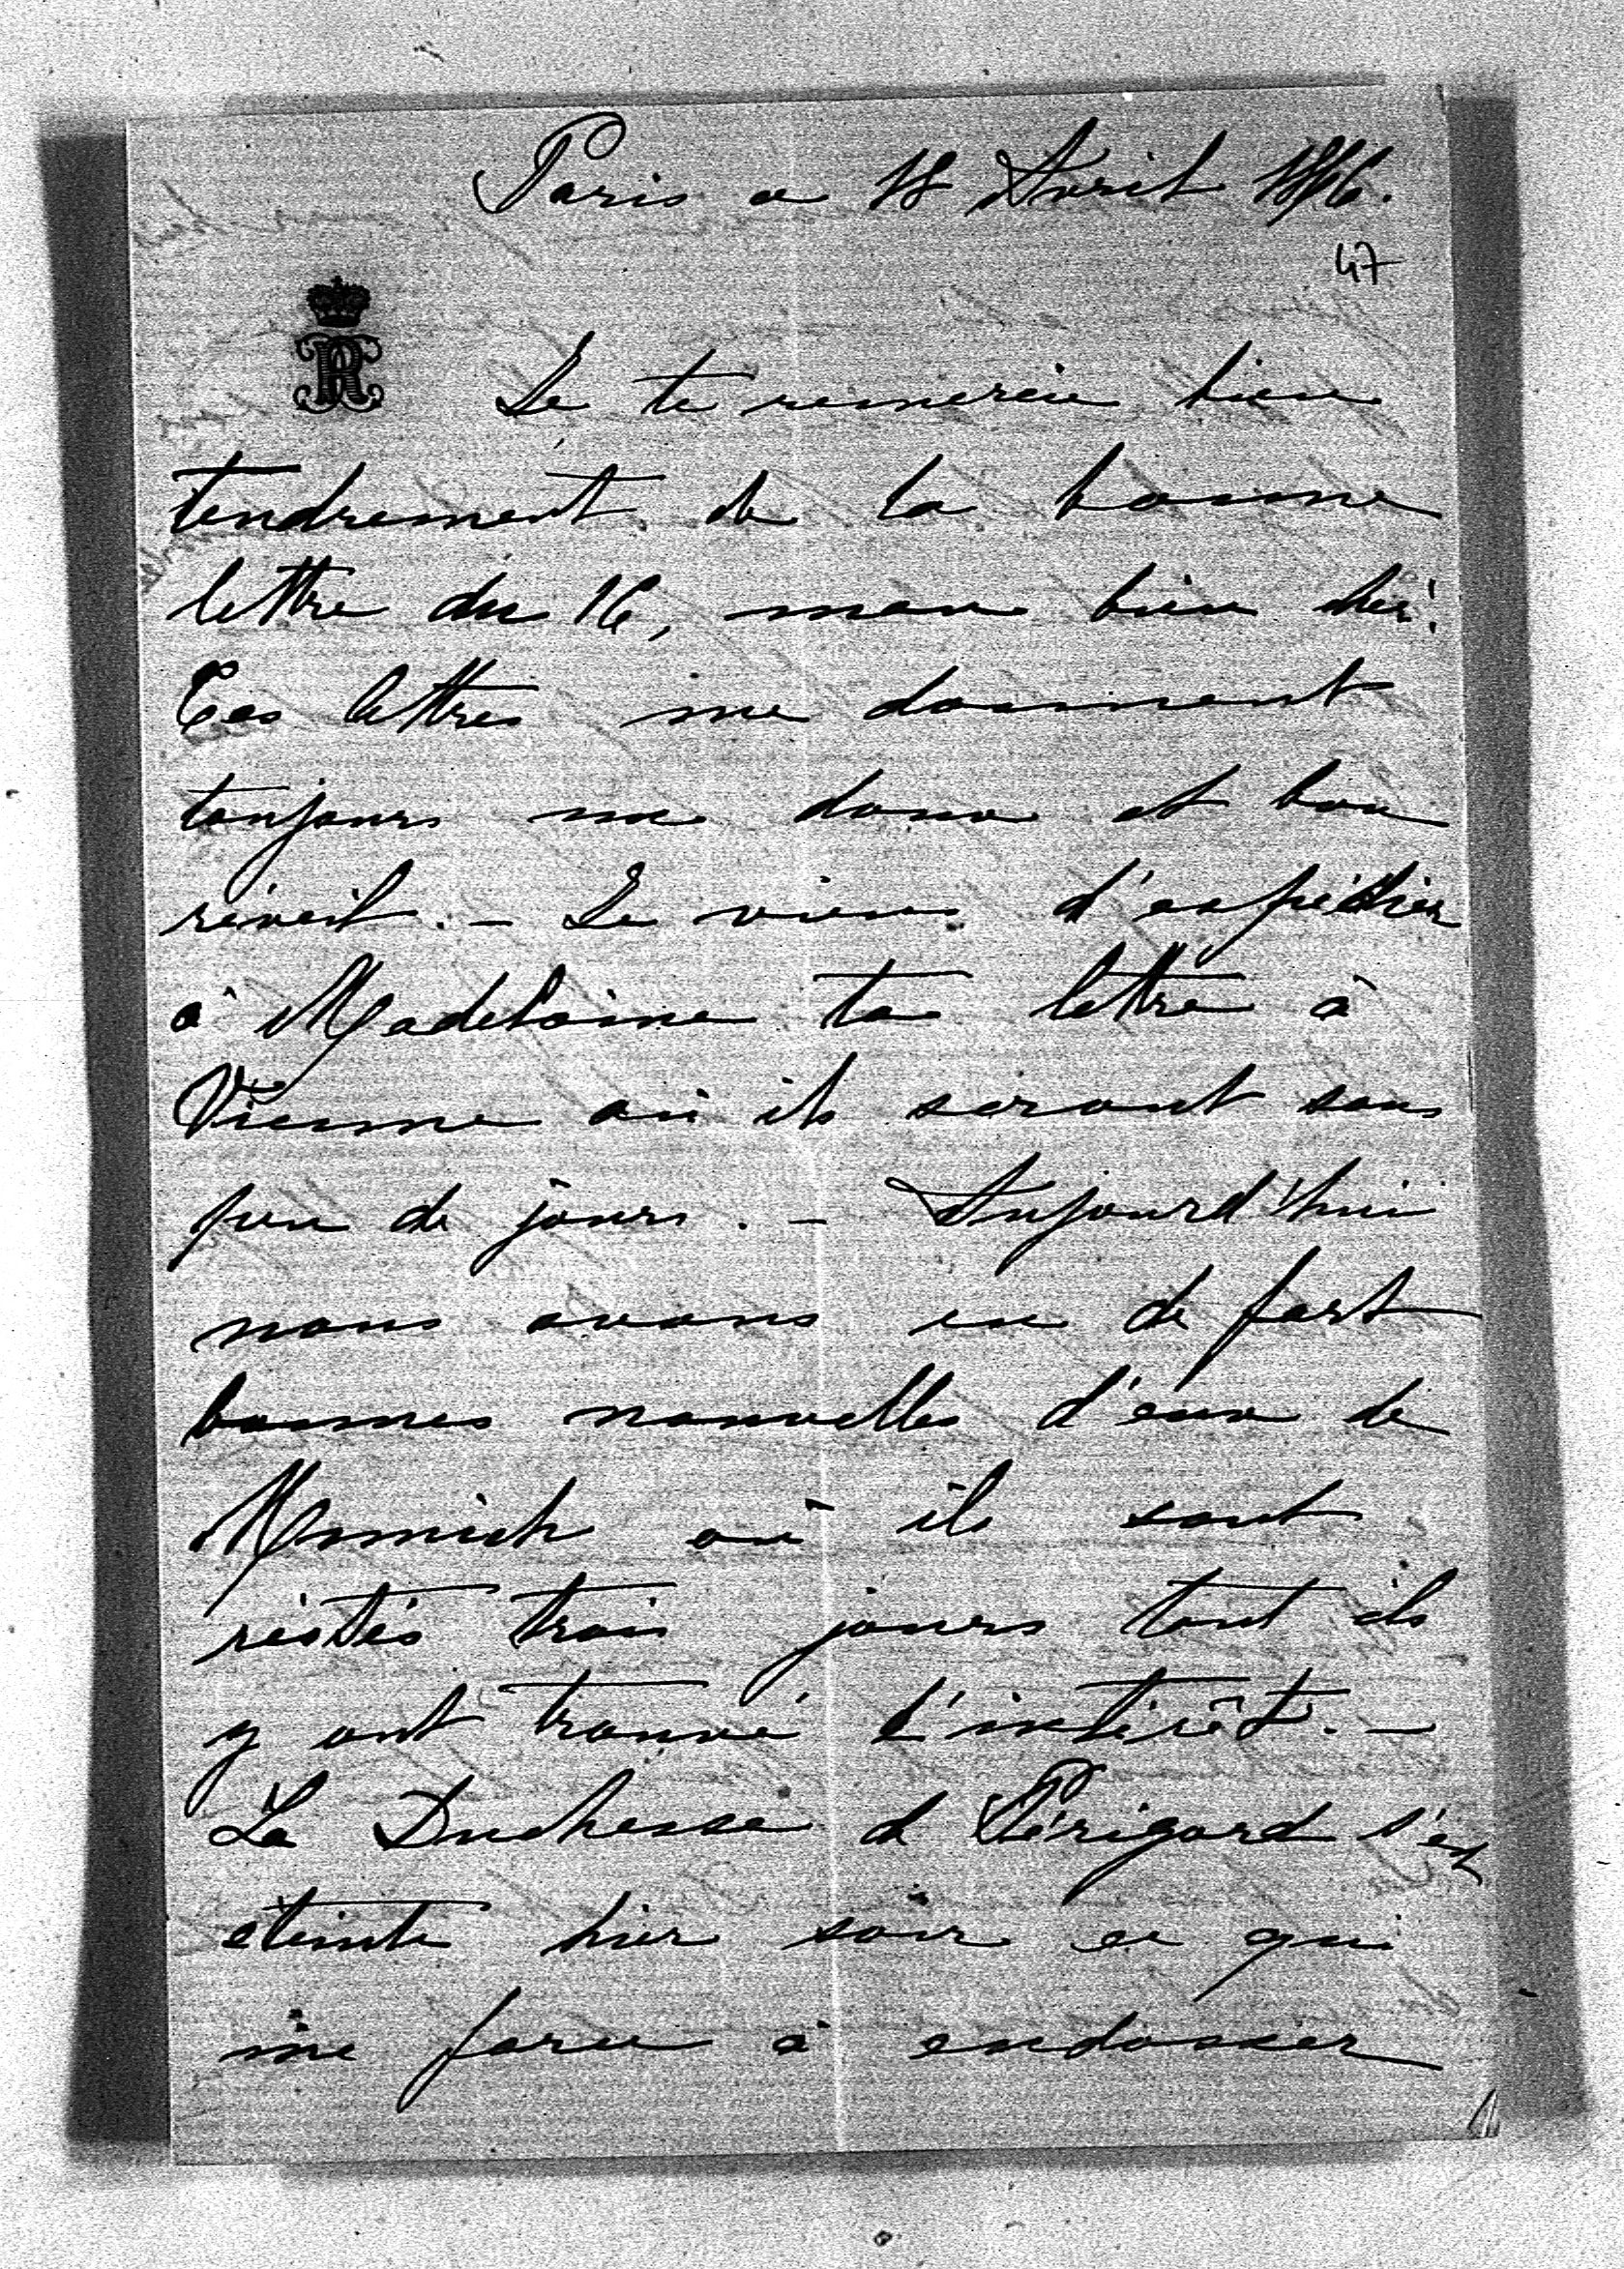 Paris ce 18 Avril 1876.
47
Je te remercie bien
tendrement de ta bonne
lettre du 16, mon bien cher!
Tes lettres me donnent
toujours un doux et bon
réveil. - Je viens d'expédier
à Madeleine ta lettre à
Vienne où ils seront sous
peu de jours. - Aujourd'hui
nous avons eu de fort
bonnes nouvelles d'eux de
Munich où ils sont
réstés trois jours tant ils
y ont trouvé d'intérêt. -
La Duchesse d Périgord s'est
éteinte hier soir ce qui
me force à endosser